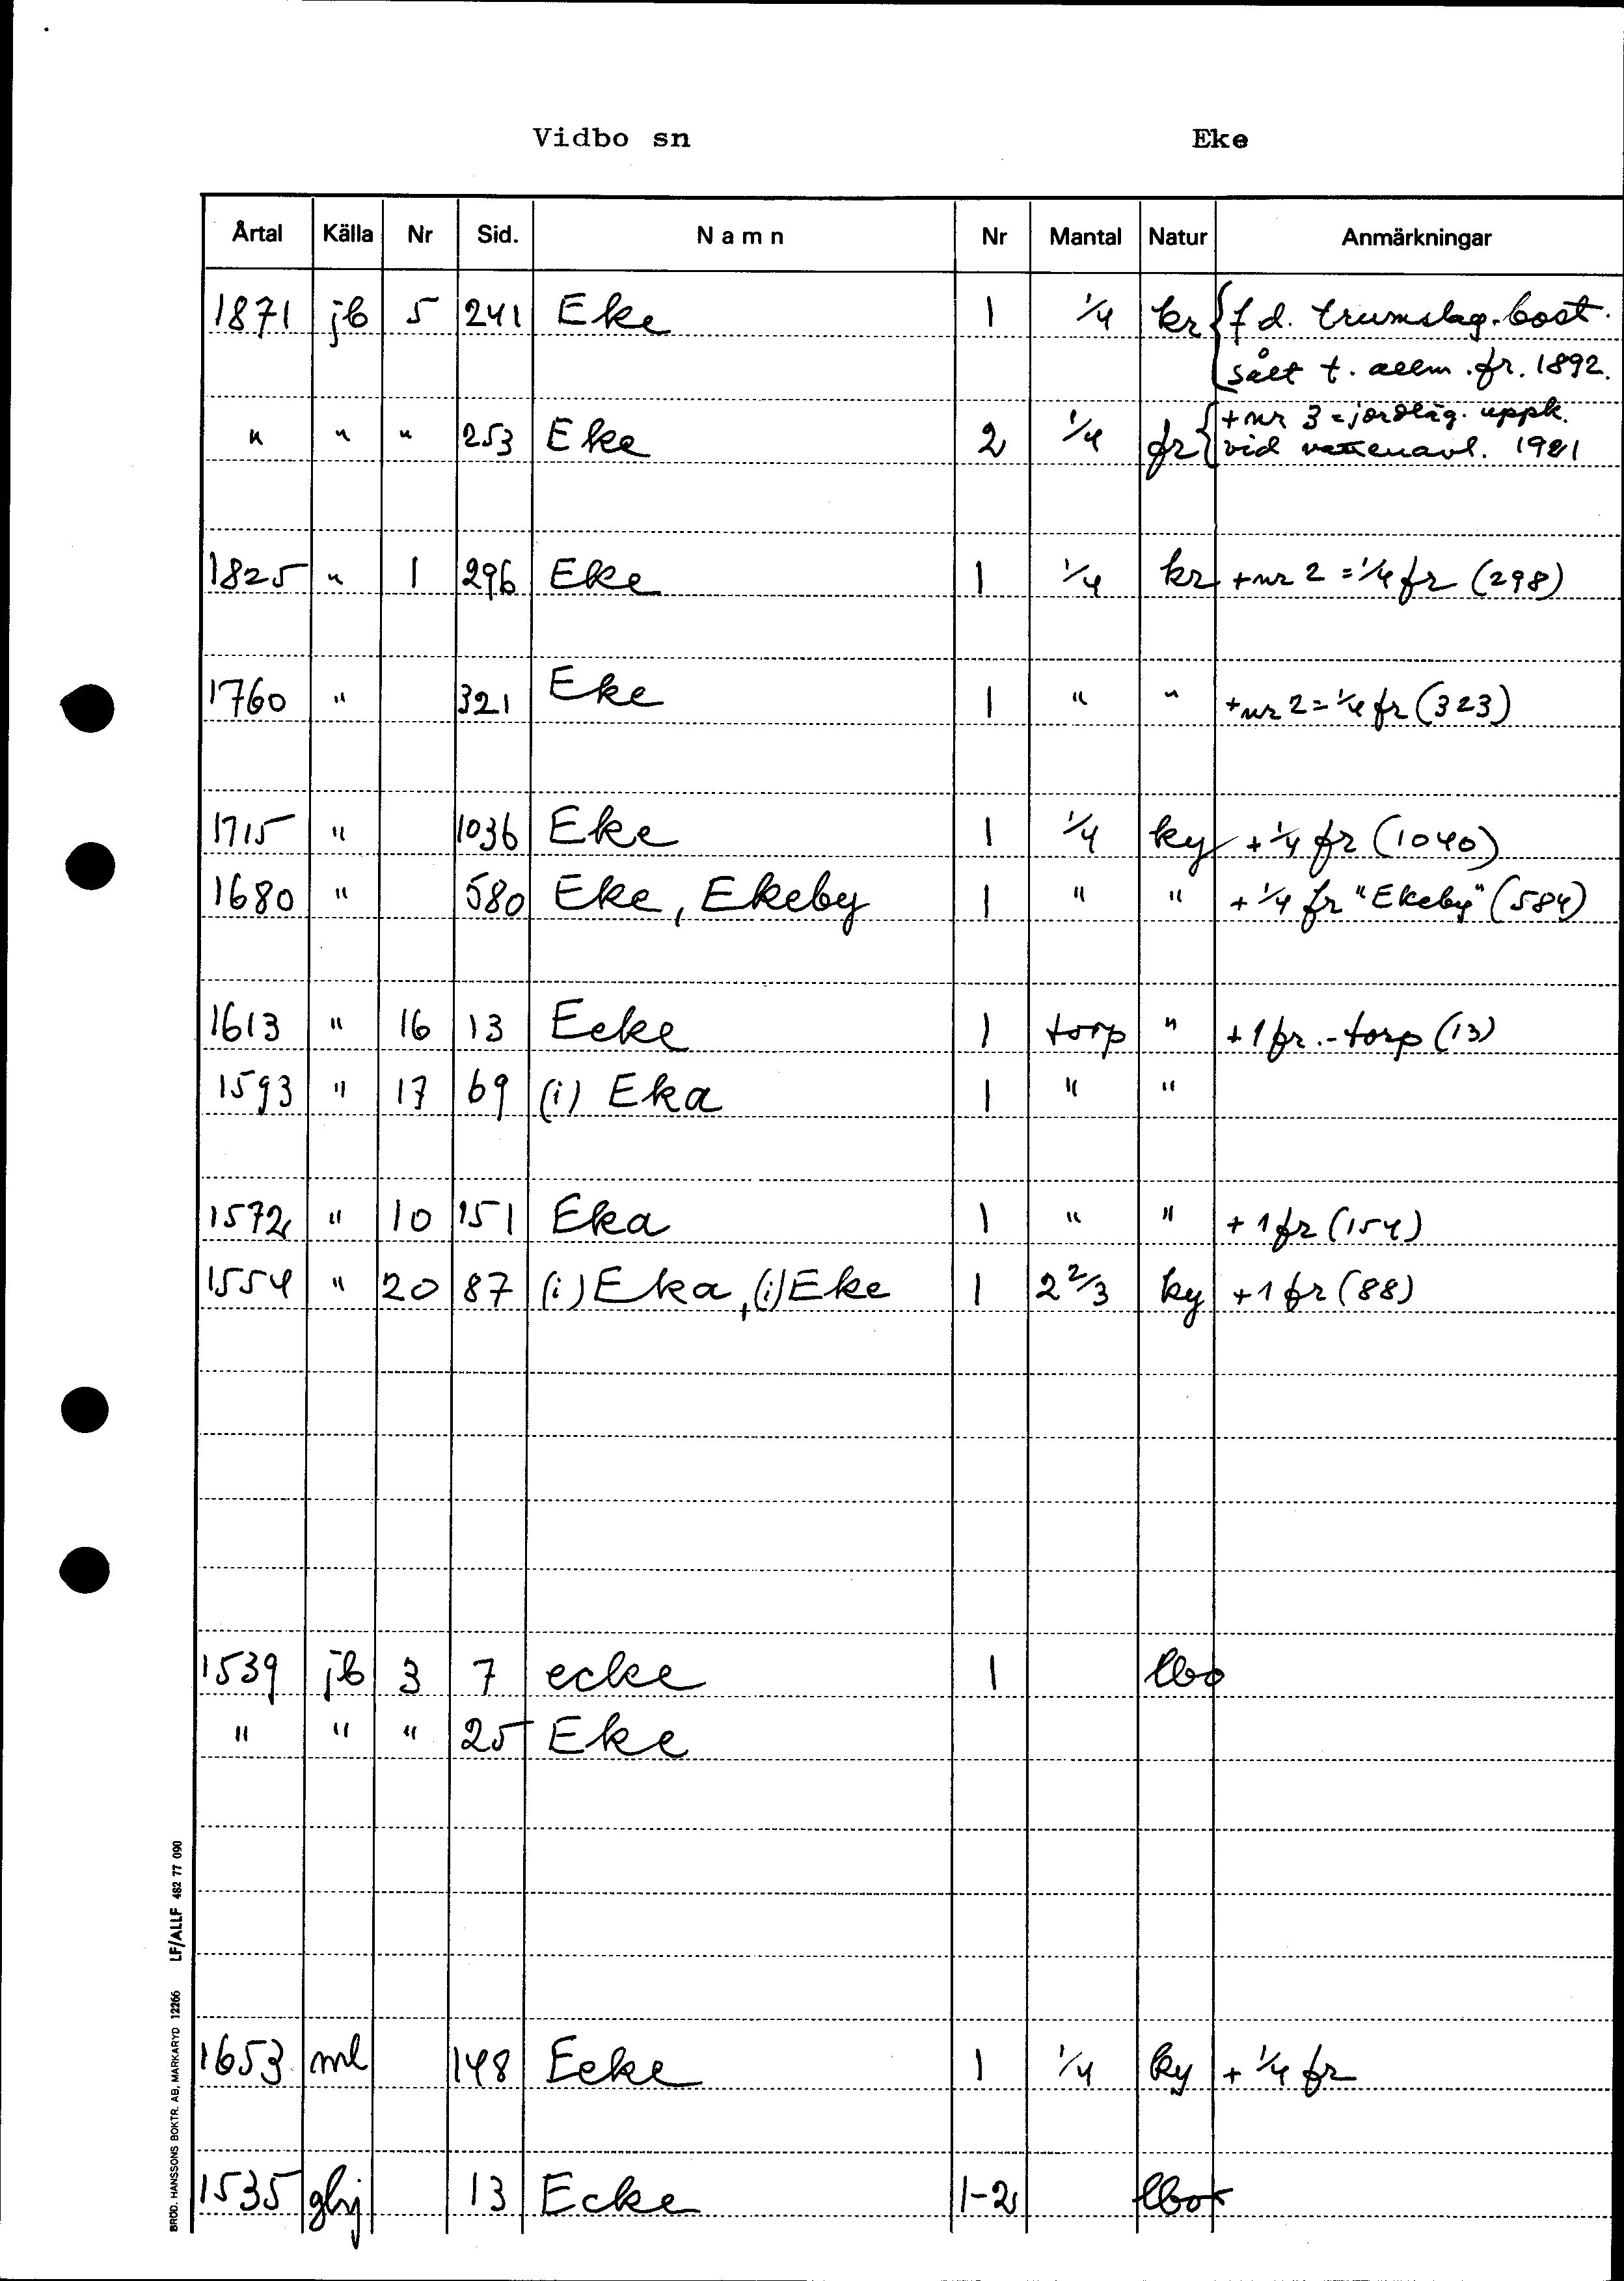 Vidbo sn Eke
Årtal Källa Nr Sid. Namn Nr Mantal Natur Anmärkningar
1871 jb 5 241 Eke 1 1/4 kr { f d. trumslag.bost.
sålt t. allm. fr. 1892.
" " " 253 Eke 2 1/4 fr { + nr 3 = jordläg. uppk.
vid vattenavl. 1921
1825 " 1 296 Eke 1 1/4 kr + nr 2 = 1/4 fr (298)
1760 " 321 Eke 1 " " + nr 2 = 1/4 fr (323)
1715 " 1036 Eke 1 1/4 ky + 1/4 fr (1040)
1680 " 580 Eke, Ekeby 1 " " + 1/4 fr "Ekeby" (584)
1613 " 16 13 Ecke 1 torp " + 1 fr.-torp (13)
1593 " 17 69 (i) Eka 1 " "
1572 " 10 151 Eka 1 " " + 1 fr (154)
1554 " 20 87 (i) Eka, (i) Eke 1 2 2/3 ky + 1 fr (88)
1539 jb 3 7 ecke 1 lbo
" " " 25 Eke
1653 ml 148 Ecke 1 1/4 ky + 1/4 fr
1535 ghj 13 Ecke 1-2 lbo
BRÖD. HANSSONS BOKTR. AB, MARKARYD 12266 LF/ALLF 482 77 090